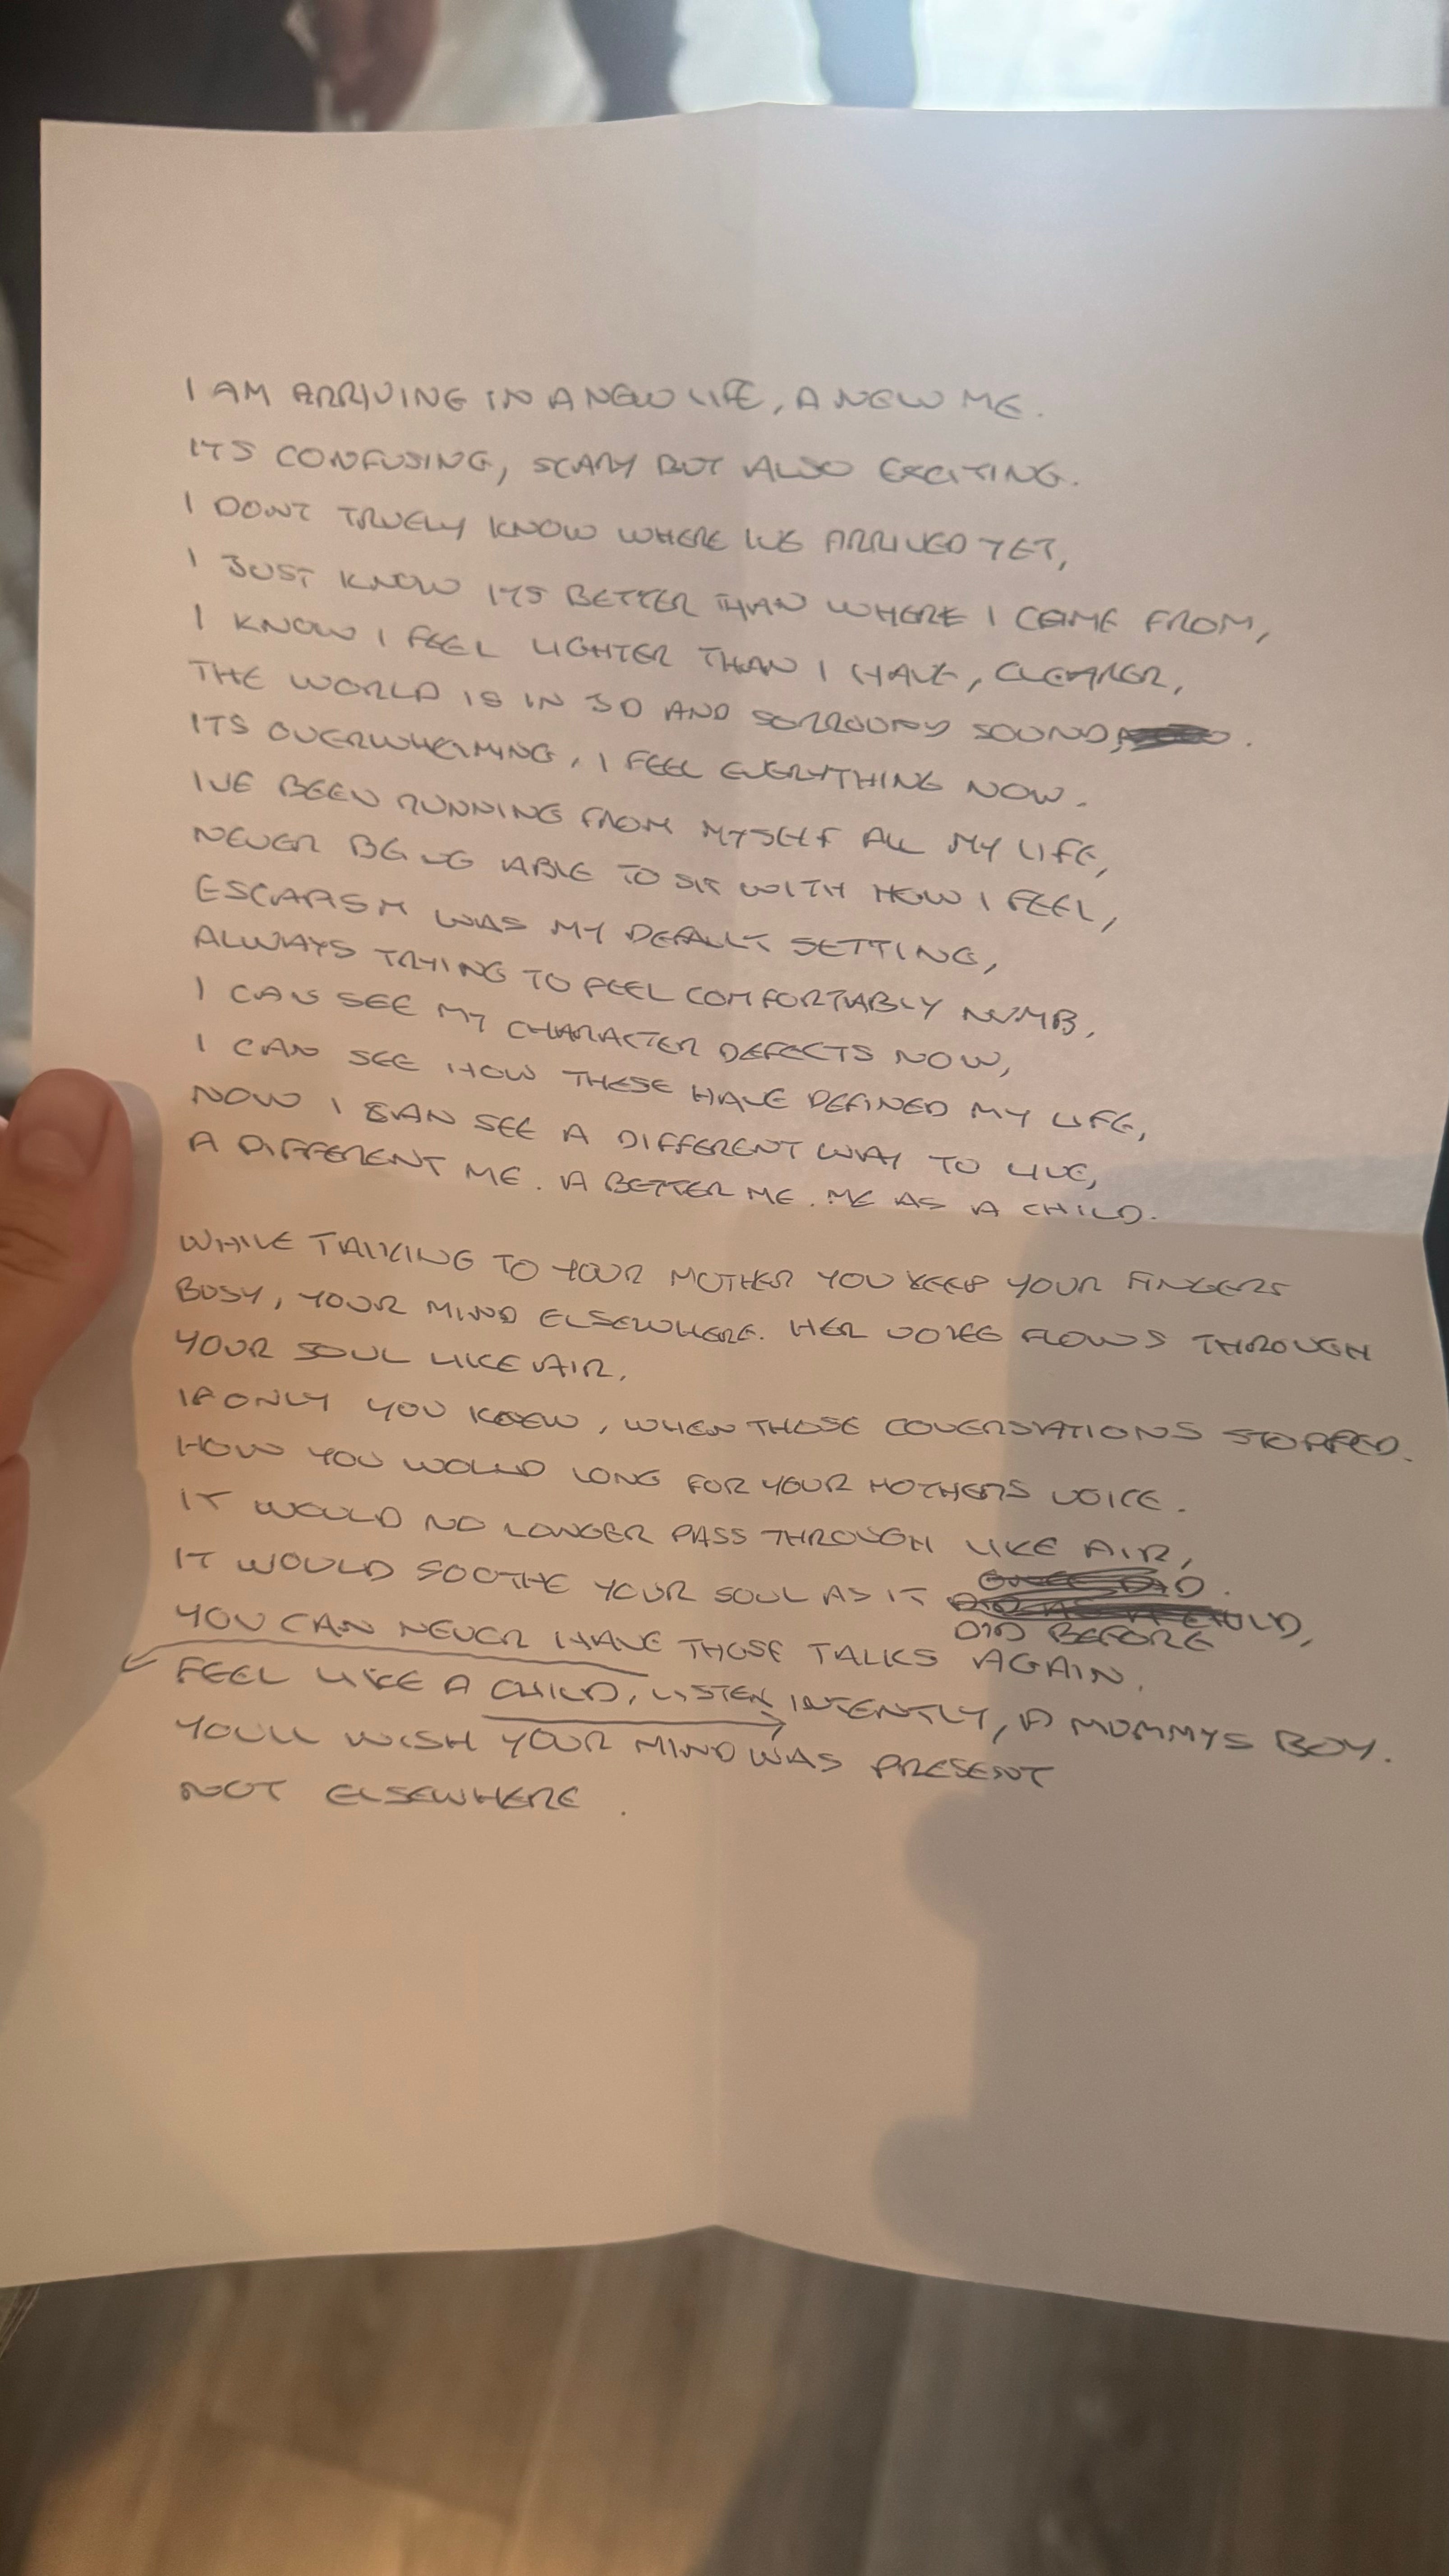 I AM ARRIVING IN A NEW LIFE, A NEW ME.
ITS CONFUSING, SCARY BUT ALSO EXCITING.
I DONT TRUELY KNOW WHERE IVE ARRIVED YET,
I JUST KNOW ITS BETTER THAN WHERE I CAME FROM,
I KNOW I FEEL LIGHTER THAN I HAVE, CLEARER,
THE WORLD IS IN 3D AND SORROUND SOUND.
ITS OVERWHELMING, I FEEL EVERYTHING NOW.
IVE BEEN RUNNING FROM MYSELF ALL MY LIFE,
NEVER BEING ABLE TO SIT WITH HOW I FEEL,
ESCAPISM WAS MY DEFAULT SETTING,
ALWAYS TRYING TO FEEL COMFORTABLY NUMB.
I CAN SEE MY CHARACTER DEFECTS NOW,
I CAN SEE HOW THESE HAVE DEFINED MY LIFE,
NOW I CAN SEE A DIFFERENT WAY TO LIVE,
A DIFFERENT ME. A BETTER ME. ME AS A CHILD.
WHILE TALKING TO YOUR MOTHER YOU KEEP YOUR FINGERS
BUSY, YOUR MIND ELSEWHERE. HER VOICE FLOWS THROUGH
YOUR SOUL LIKE AIR.
IF ONLY YOU KNEW, WHEN THOSE COVERSATIONS STOPPED.
HOW YOU WOULD LONG FOR YOUR MOTHERS VOICE.
IT WOULD NO LONGER PASS THROUGH LIKE AIR,
IT WOULD SOOTHE YOUR SOUL AS IT
DID BEFORE
YOU CAN NEVER HAVE THOSE TALKS AGAIN.
FEEL LIKE A CHILD, LISTEN INTENTLY, A MUMMYS BOY.
YOULL WISH YOUR MIND WAS PRESENT
NOT ELSEWHERE.